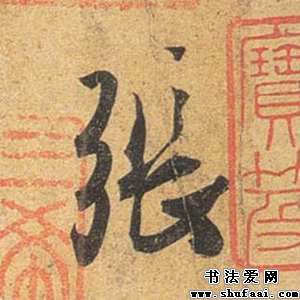 張
寶
书法爱网
www.shufaai.com